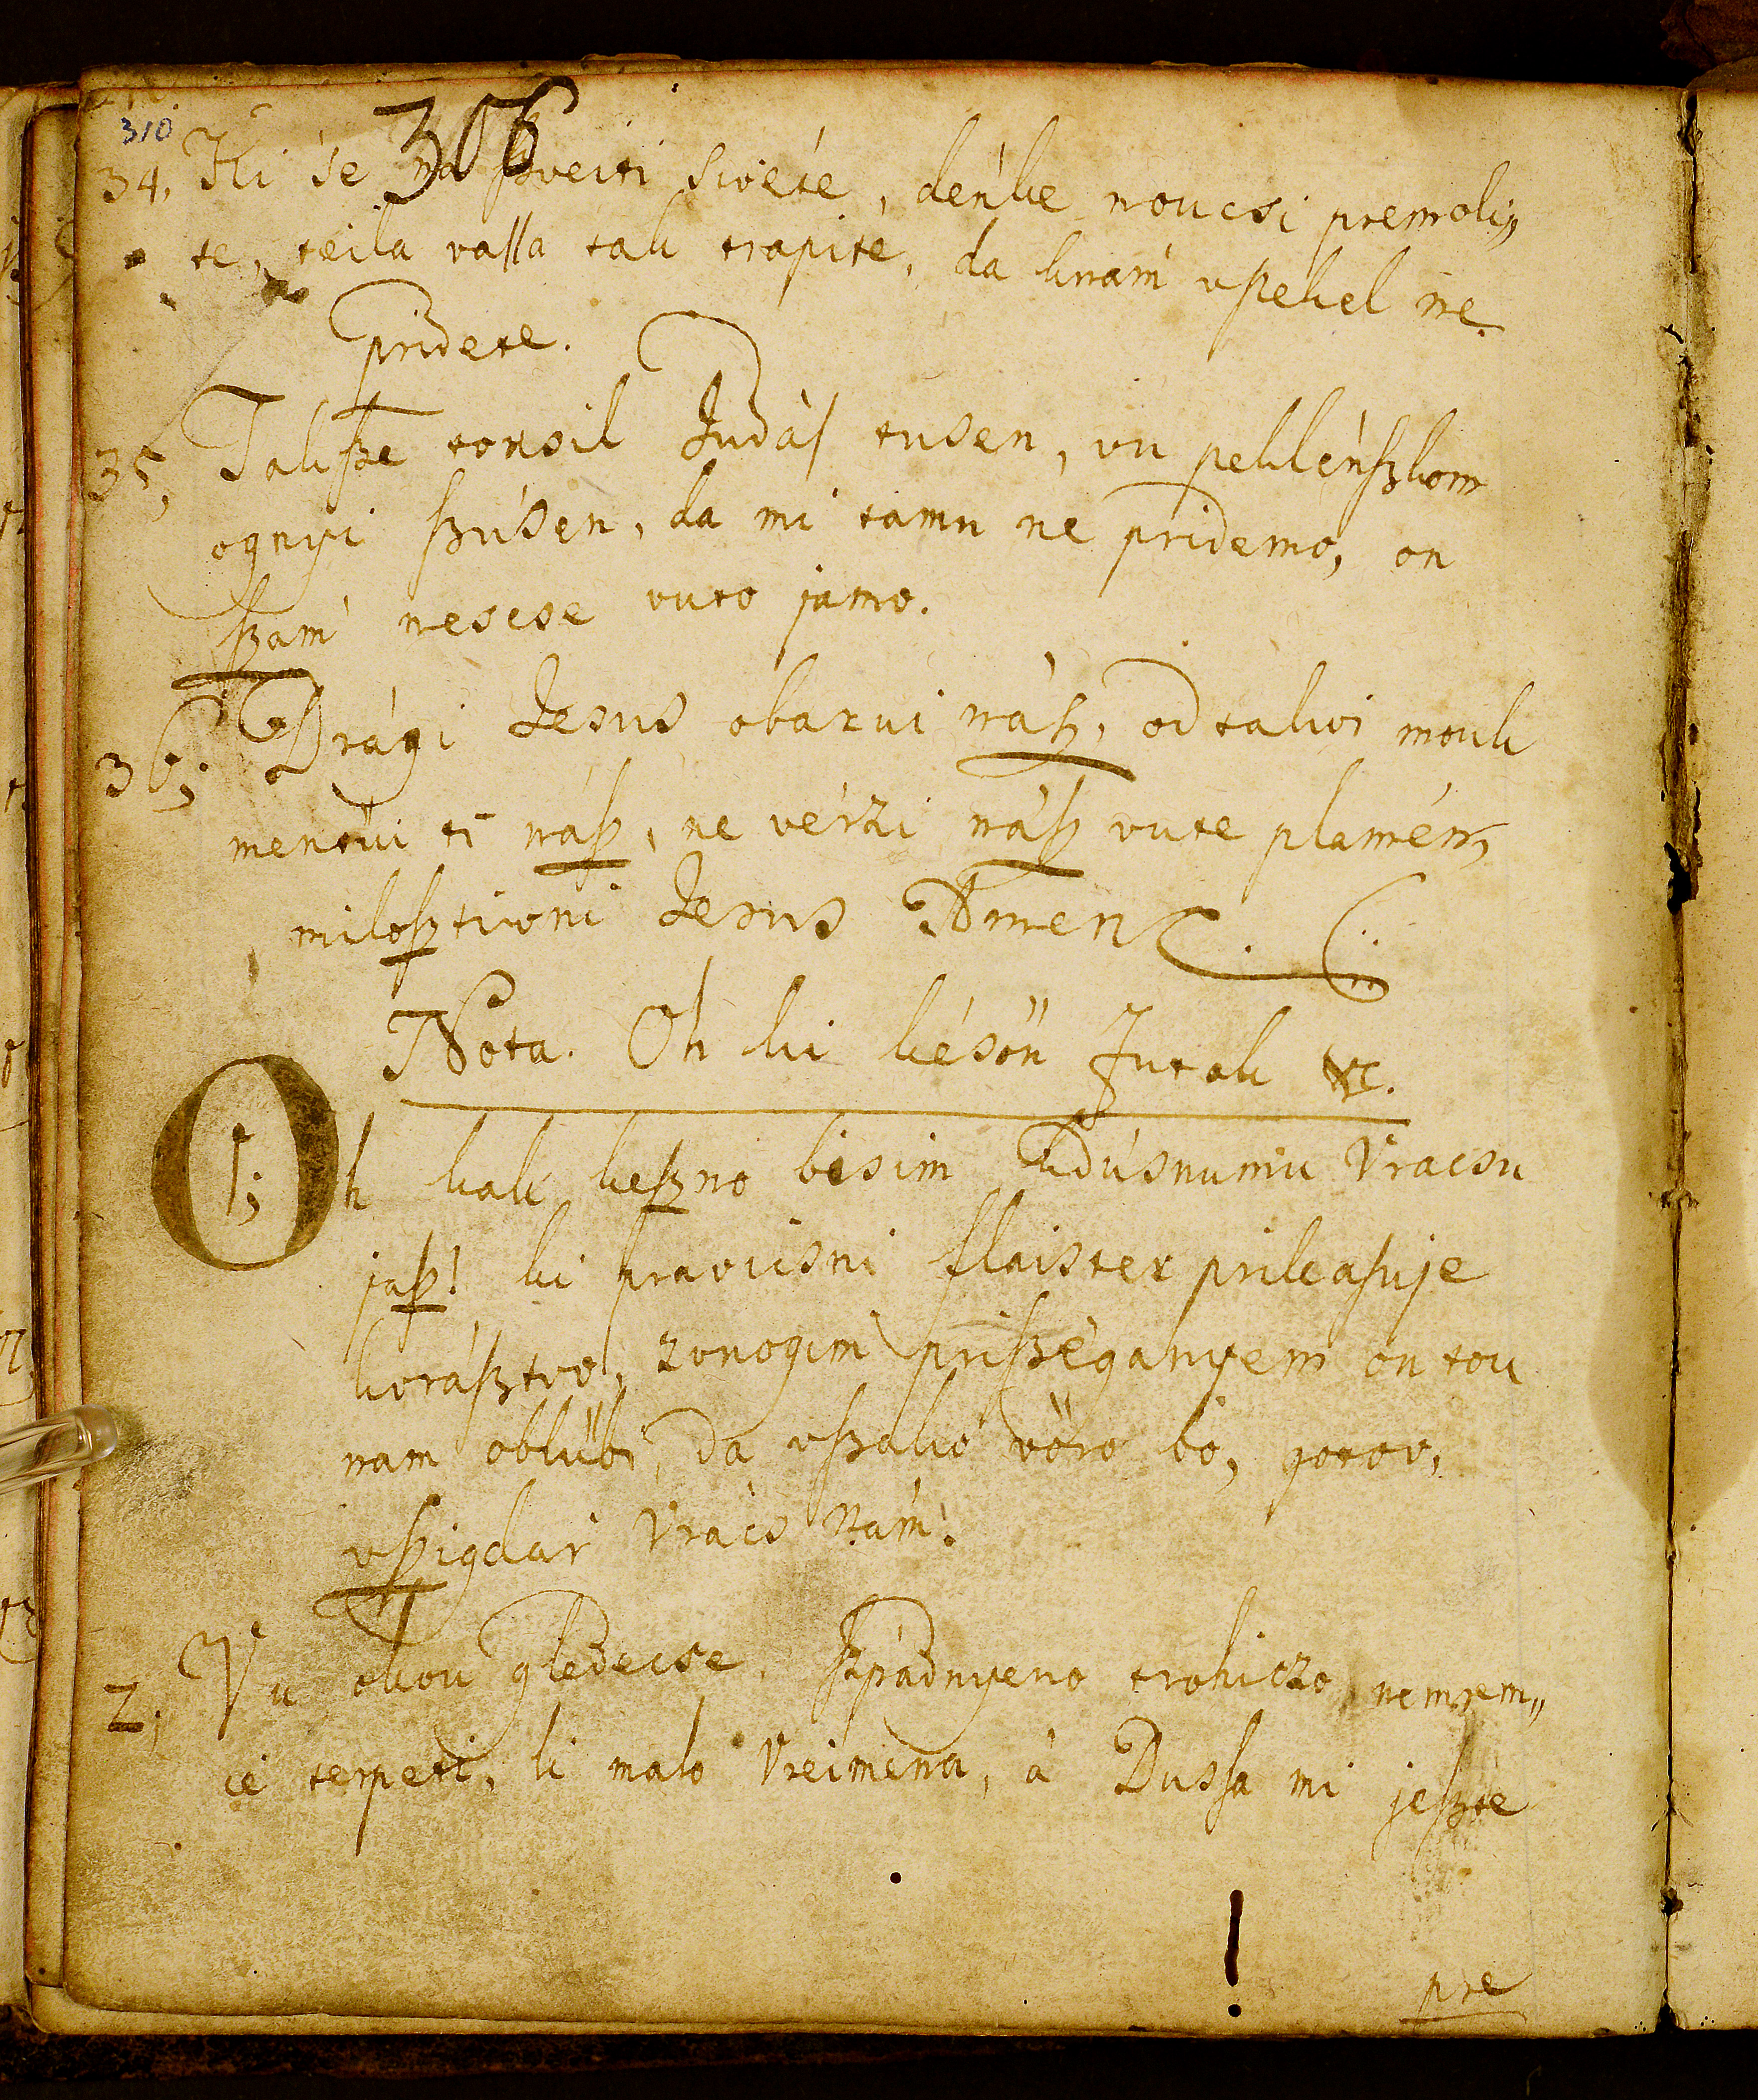 310
306
34, Ki śe na ſzveiti sivéte, dénke noucsi premoli„
te, teila vaſſa tak trapite, da knam vPekel ne
pridete.
35, Takſze tonsil Judáſ tusen, vu peklénſzkom
ognyi ſzúsen, da mi tamu ne pridemo, on
ſzam nescse vuto jamo.
36; Drági Jesus obarui náſz, od takvi mouk
mentüi ti náſz, ne vérzi náſz vute plamén,
miloſztivni Jesus Amen
Nota. Oh ki késön Jutok &c.
1; Oh kak keſzno bisim kdúsnumu Vracsu
jaſz! ki pravicsni flaister prikaſuje
koráſztvo, zvnogim priſzéganyem on tou
nam oblübi, da vſzako vöro bó, gotov,
vſzigdar Vrács Nám.
2, Vu okou gledécse, ſzpádnyeno trohiczo nemrem„
cé terpeti, li malo Vreimena, á Dusſa mi jeſzte
pre